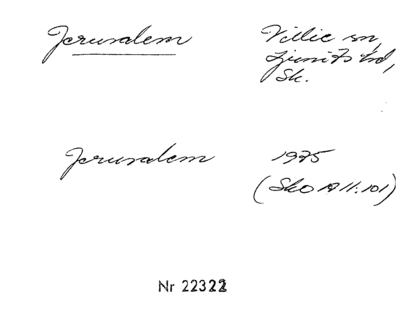 Jerusalem
Villie sn,
Ljunits hd,
Sk.
Jerusalem 1975
(SkO A 11:101)
Nr 22322